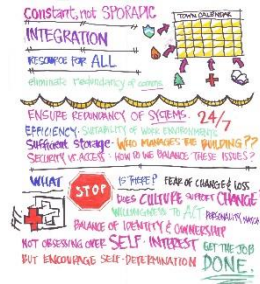 constant, not SPORADIC
TOWN CALENDAR
INTEGRATION
RESOURCE FOR ALL
eliminate redundancy of
ENSURE REDUNDANCY OF SYSTEMS. 24/7
EFFICIENCY. SUITABILITY OF WORK ENVIRONMENTS
Sufficient storage. WHO MANAGES THE BUILDING??
SECURITY vs ACCESS. HOW DO WE BALANCE THESE ISSUES?
WHAT STOP IS THERE? FEAR OF CHANGE & LOSS
DOES CULTURE SUPPORT CHANGE
WILLINGNESS TO ACT PERSONALITY
BALANCE OF IDENTITY & OWNERSHIP
NOT OBSESSING OVER SELF-INTEREST GET THE JOB
BUT ENCOURAGE SELF-DETERMINATION DONE.